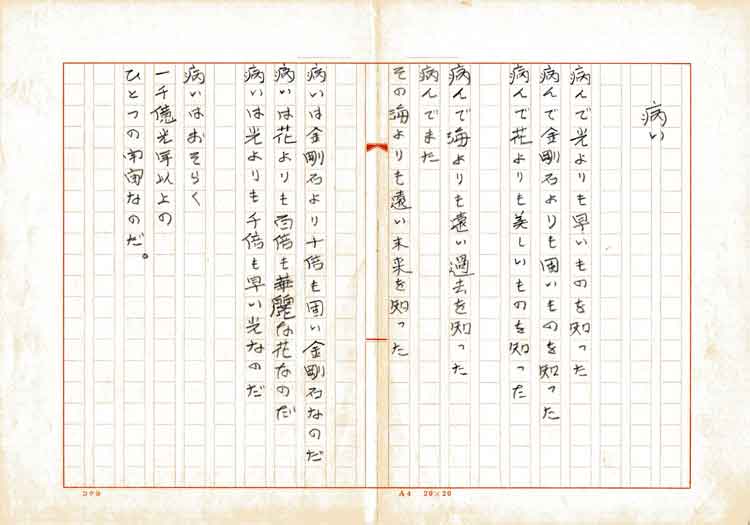 病い
病んで光よりも早いものを知った
病んで金剛石よりも固いものを知った
病んで花よりも美しいものを知った
病んで海よりも遠い過去を知った
病んでまた
その海よりも遠い未来を知った
病いは金剛石より十倍も固い金剛石なのだ
病いは花よりも百倍も華麗な花なのだ
病いは光よりも千倍も早い光なのだ
病いはおそらく
一千億光年以上の
ひとつの宇宙なのだ。
コクヨ
A4 20×20